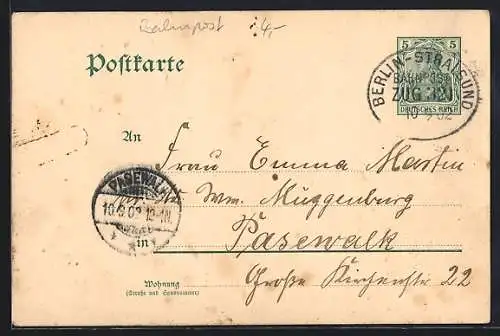 Bahnpost 4,-
5 5
BERLIN-STRALSUND
BAHNPOST
ZUG 321
10 9 02
DEUTSCHES REICH
Postkarte
An
Frau Emma Martin
Wm. Muggenburg
PASEWALK
10.9.02
in Pasewalk
Große Kirchenstr 22
Wohnung
(Straße und Hausnummer)